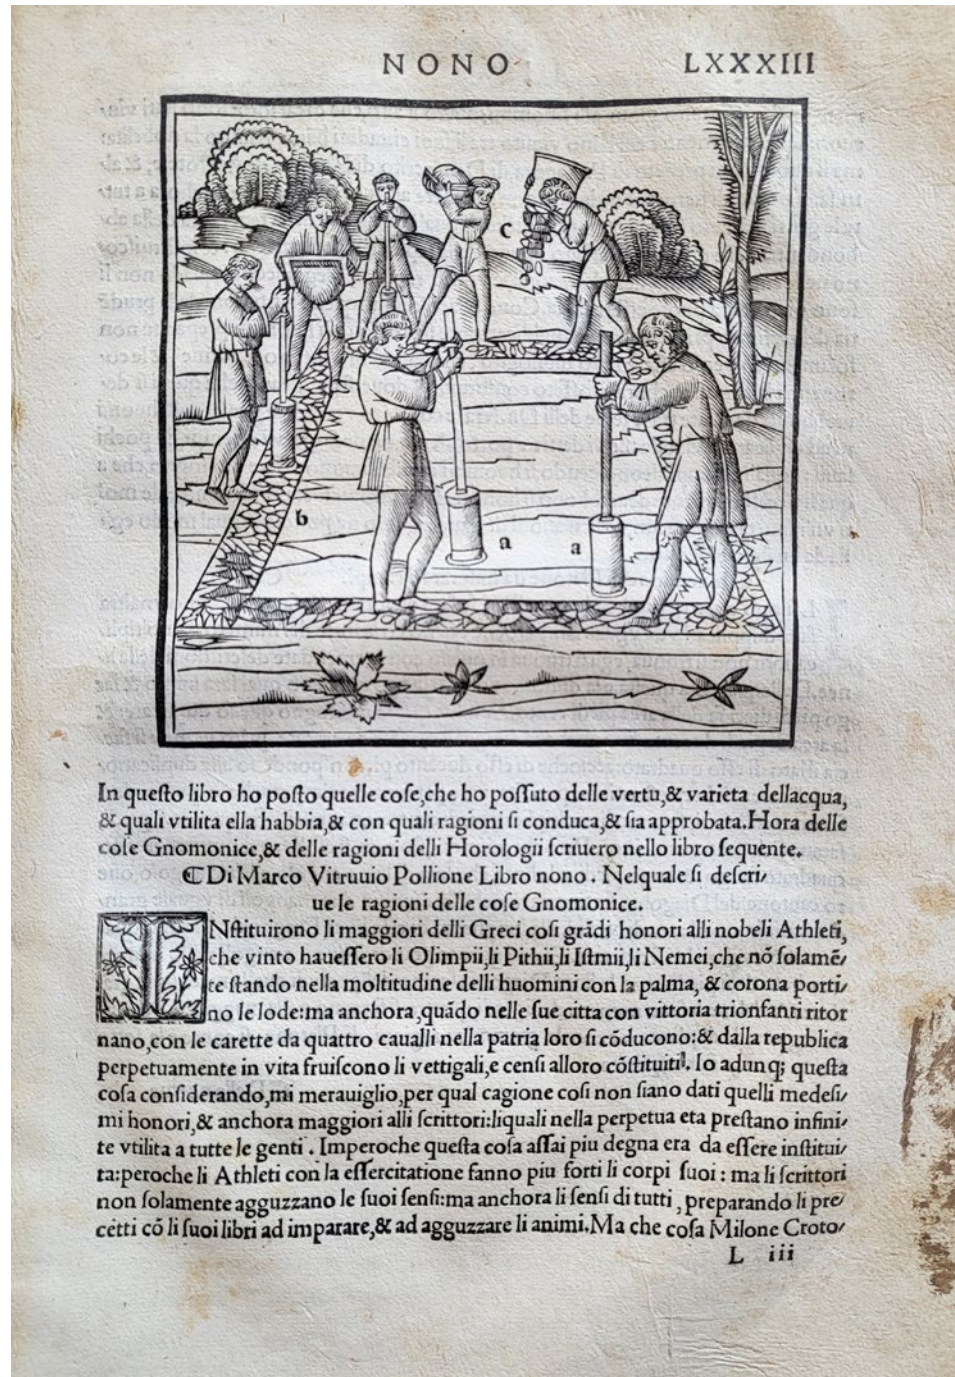 NONO LXXXIII
c
b
a a
In queſto libro ho poſto quelle coſe,che ho poſſuto delle vertu,& varieta dellacqua,
& quali vtilita ella habbia,& con quali ragioni ſi conduca,& ſia approbata.Hora delle
coſe Gnomonice,& delle ragioni delli Horologii ſcriuero nello libro ſequente.
⁌Di Marco Vitruuio Pollione Libro nono. Nelquale ſi deſcri/
ue le ragioni delle coſe Gnomonice.
INſtituirono li maggiori delli Greci coſi grādi honori alli nobeli Athleti,
che vinto haueſſero li Olimpii,li Pithii,li Iſtmii,li Nemei,che nō ſolamē/
te ſtando nella moltitudine delli huomini con la palma, & corona porti/
no le lode:ma anchora,quādo nelle ſue citta con vittoria trionfanti ritor
nano,con le carette da quattro caualli nella patria loro ſi cōducono:& dalla republica
perpetuamente in vita fruiſcono li vettigali,e cenſi alloro cōſtituiti. Io adunq; queſta
coſa conſiderando,mi merauiglio,per qual cagione coſi non ſiano dati quelli medeſi/
mi honori,& anchora maggiori alli ſcrittori:liquali nella perpetua eta preſtano infini/
te vtilita a tutte le genti. Imperoche queſta coſa aſſai piu degna era da eſſere inſtitui/
ta:peroche li Athleti con la eſſercitatione fanno piu forti li corpi ſuoi: ma li ſcrittori
non ſolamente agguzzano le ſuoi ſenſi:ma anchora li ſenſi di tutti, preparando li pre/
cetti cō li ſuoi libri ad imparare,& ad agguzzare li animi.Ma che coſa Milone Croto/
L iii